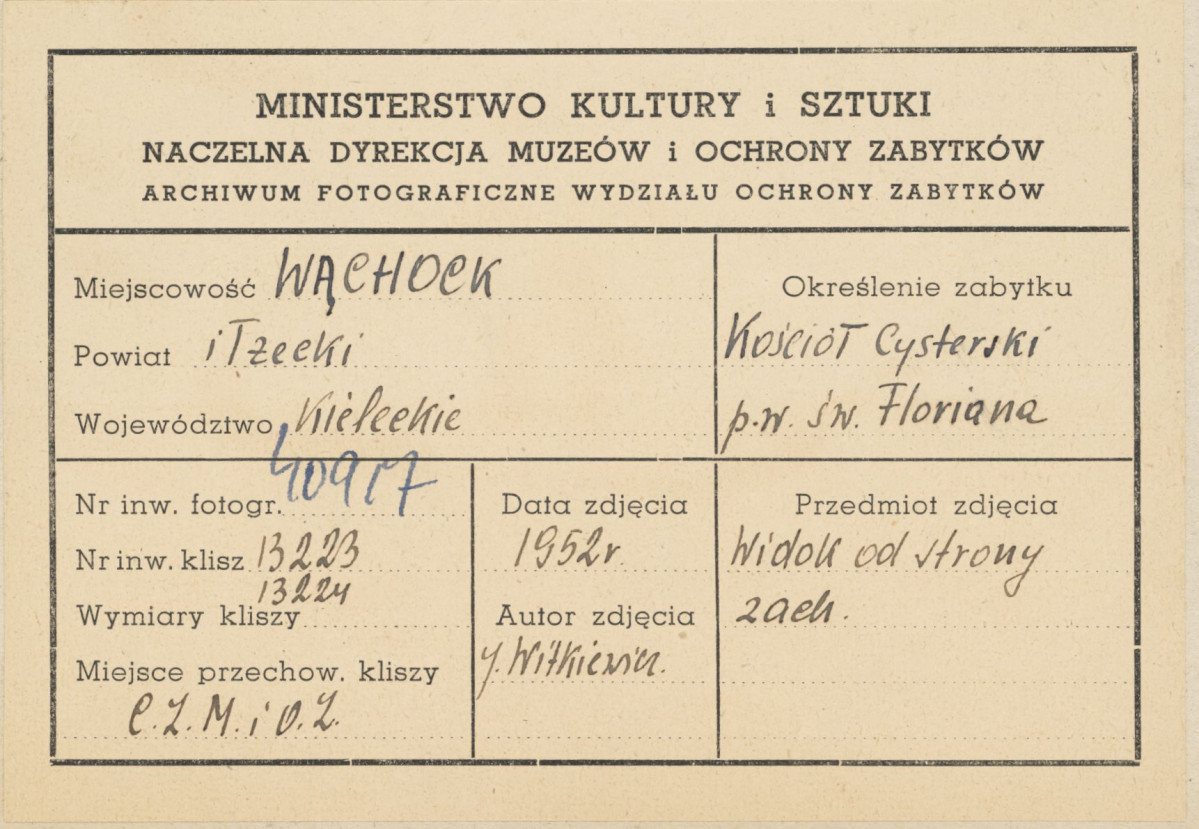 MINISTERSTWO KULTURY i SZTUKI
NACZELNA DYREKCJA MUZEÓW i OCHRONY ZABYTKÓW
ARCHIWUM FOTOGRAFICZNE WYDZIAŁU OCHRONY ZABYTKÓW
Miejscowość WĄCHOCK
Powiat iłżecki
Województwo Kieleckie
Określenie zabytku
Kościół Cysterski
p.w. św. Floriana
Nr inw. fotogr. 40917
Nr inw. klisz 13223
13224
Wymiary kliszy
Miejsce przechow. kliszy
C.Z.M. i O.Z.
Data zdjęcia
1952r.
Autor zdjęcia
J. Witkiewicz.
Przedmiot zdjęcia
Widok od strony
zach.